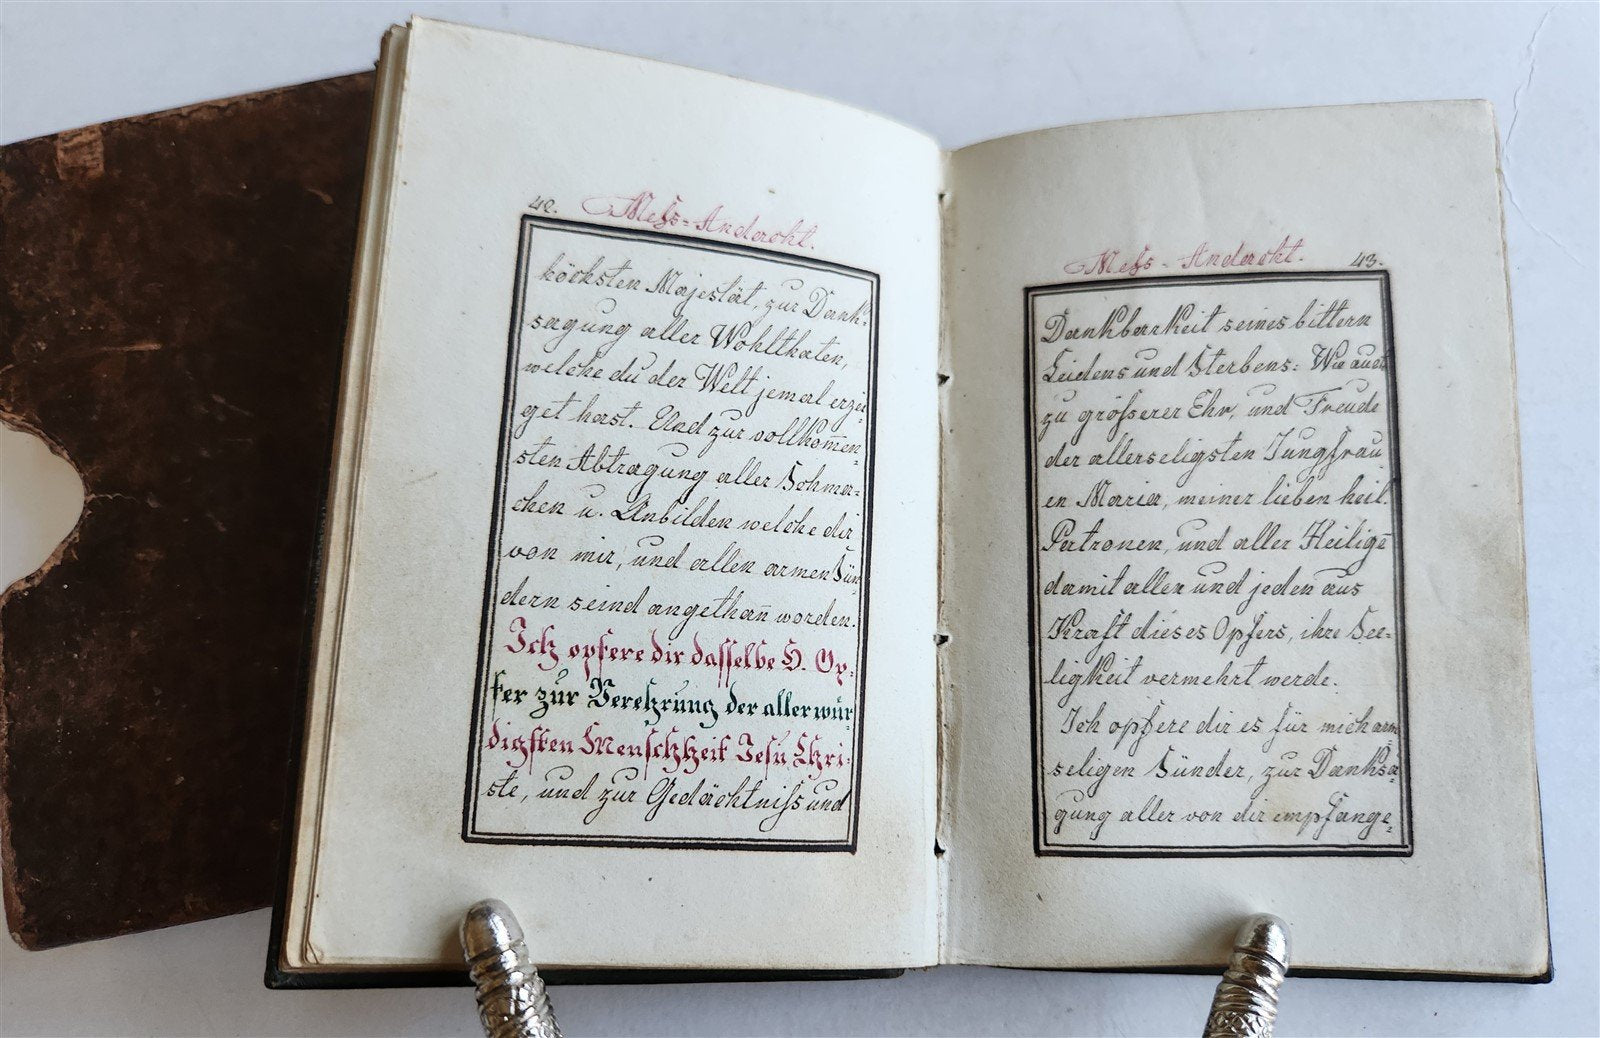 42. Mess=Andacht.
höchsten Majestät, zur Dank=
sagung aller Wohlthaten,
welche du der Welt jemal erzei=
get hast. Und zur vollkom̅en=
sten Abtragung aller Schma=
chen u. Unbilden welche dir
von mir, und allen armen Sün
dern seind angethan̅ worden.
Ich opfere dir dasselbe H. Op=
fer zur Verehrung der allerwür=
digsten Menschheit Jesu Chri=
ste, und zur Gedächtniss und
Mess-Andacht. 43.
Dankbarkeit seines bittern
Leidens und Sterbens: Wie auch
zu grösserer Ehr, und Freude
der allerseligsten Jungfrau
en Maria, meiner lieben heil.
Patronen, und aller Heilige̅
damit allen und jeden aus
Kraft dieses Opfers, ihre See=
ligkeit vermehrt werde.
Ich opfere dir es für mich arm
seligen Sünder, zur Danksa=
gung aller von dir empfange=